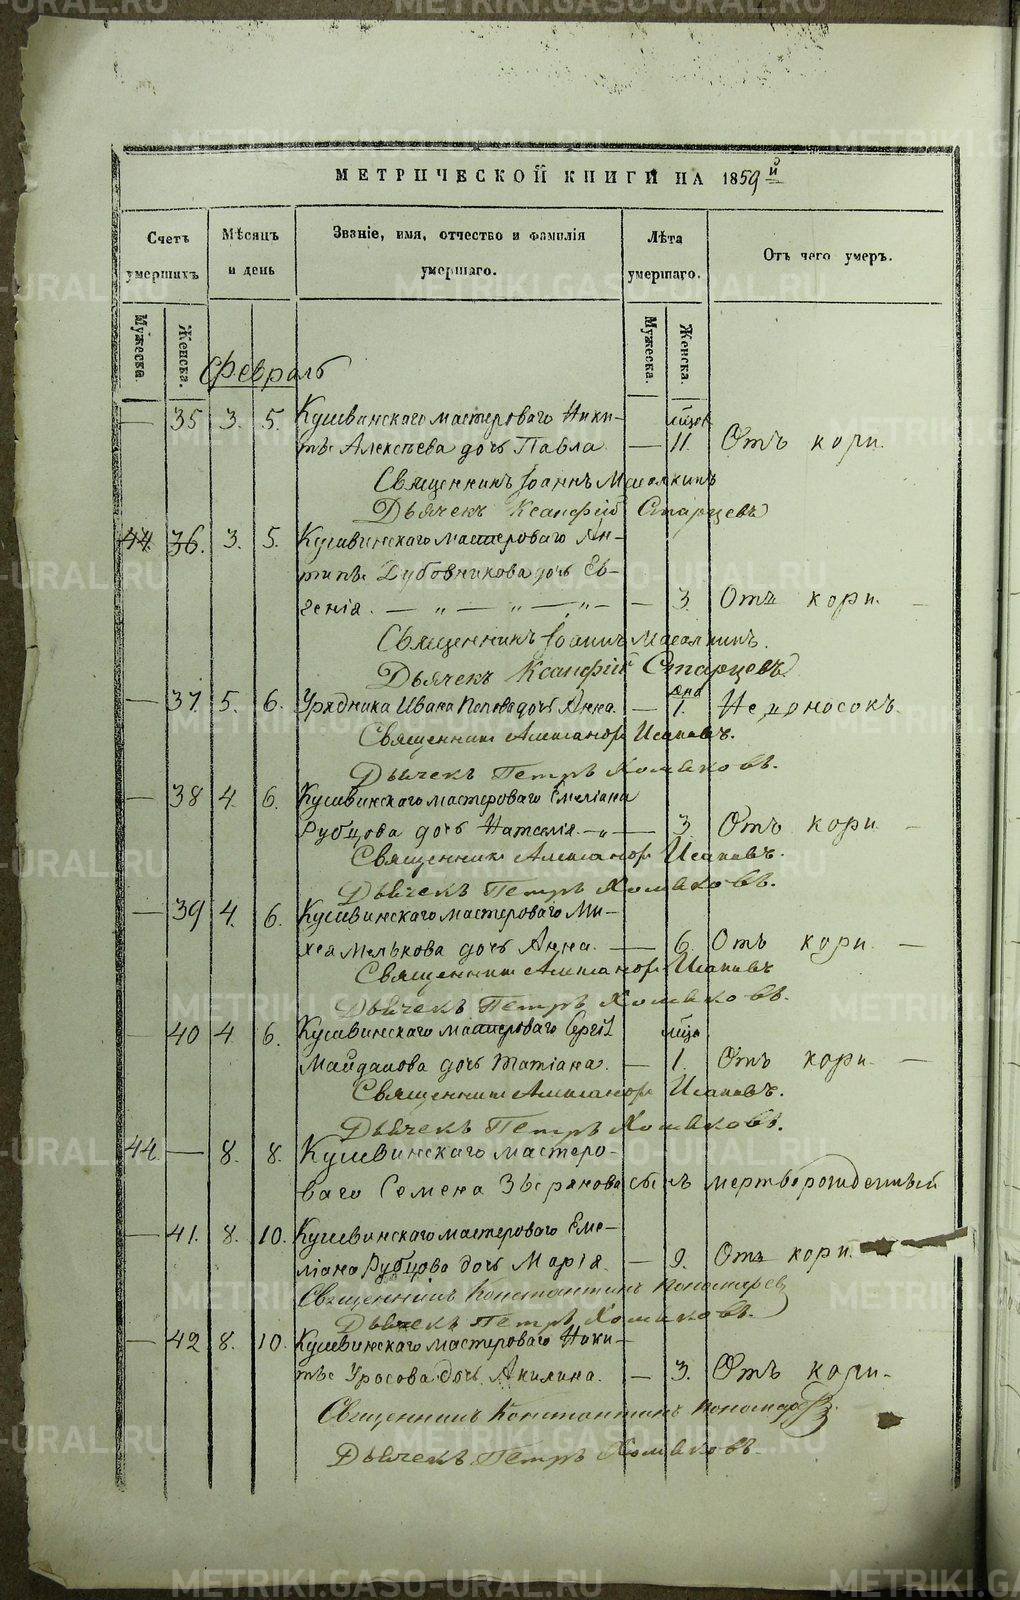 МЕТРИЧЕСКОЙ КНИГИ НА 1859й
Счетъ умершихъ
Мѣсяцъ и день
Званіе, имя, отчество и фамилія умершаго.
Лѣта умершаго.
Отъ чего умеръ.
Мужеска. Женска. Мужеска. Женска.
Февраль
— 35 3. 5. Кушвинскаго мастероваго Ники- мѣс.
ты Алексѣева дочь Павла — 11. Отъ кори.
Священникъ Іоаннъ
Дьячекъ Ксанфій Старцевъ
44. 36. 3. 5. Кушвинскаго мастероваго Ан-
типы Дубовникова дочь Ев-
генія. — „ — „ — „ — — 3. Отъ кори. —
Священникъ Іоаннъ
Дьячекъ Ксанфій Старцевъ
— 37 5. 6. Урядника Ивана Попова дочь Анна. — дня 1. Недоносокъ.
Священникъ Александръ
Дьячекъ Петръ Хомяковъ.
— 38 4. 6. Кушвинскаго мастероваго Емеліана
Рубцова дочь Наталія — „ — 3. Отъ кори —
Священникъ Александръ
Дьячекъ Петръ Хомяковъ.
— 39 4. 6. Кушвинскаго мастероваго Ми-
хея Мелькова дочь Анна. — 6. Отъ кори. —
Священникъ Александръ
Дьячекъ Петръ Хомяковъ.
— 40 4 6. Кушвинскаго мастероваго Сергѣя мѣс.
Майданова дочь Татіана. — 1. Отъ кори. —
Священникъ Александръ
Дьячекъ Петръ Хомяковъ.
44. — 8. 8. Кушвинскаго мастеро-
ваго Семена Зырянова сынъ мертворожденный
— 41. 8. 10. Кушвинскаго мастероваго Еме-
ліана Рубцова дочь Марія. — 9. Отъ кори.
Священникъ Константинъ Пономаревъ
Дьячекъ Петръ Хомяковъ.
— 42 8. 10. Кушвинскаго мастероваго Ники-
ты Уросова дочь Акилина. — 3. Отъ кори.
Священникъ Константинъ Пономаревъ
Дьячекъ Петръ Хомяковъ.
METRIKI.GASO-URAL.RU